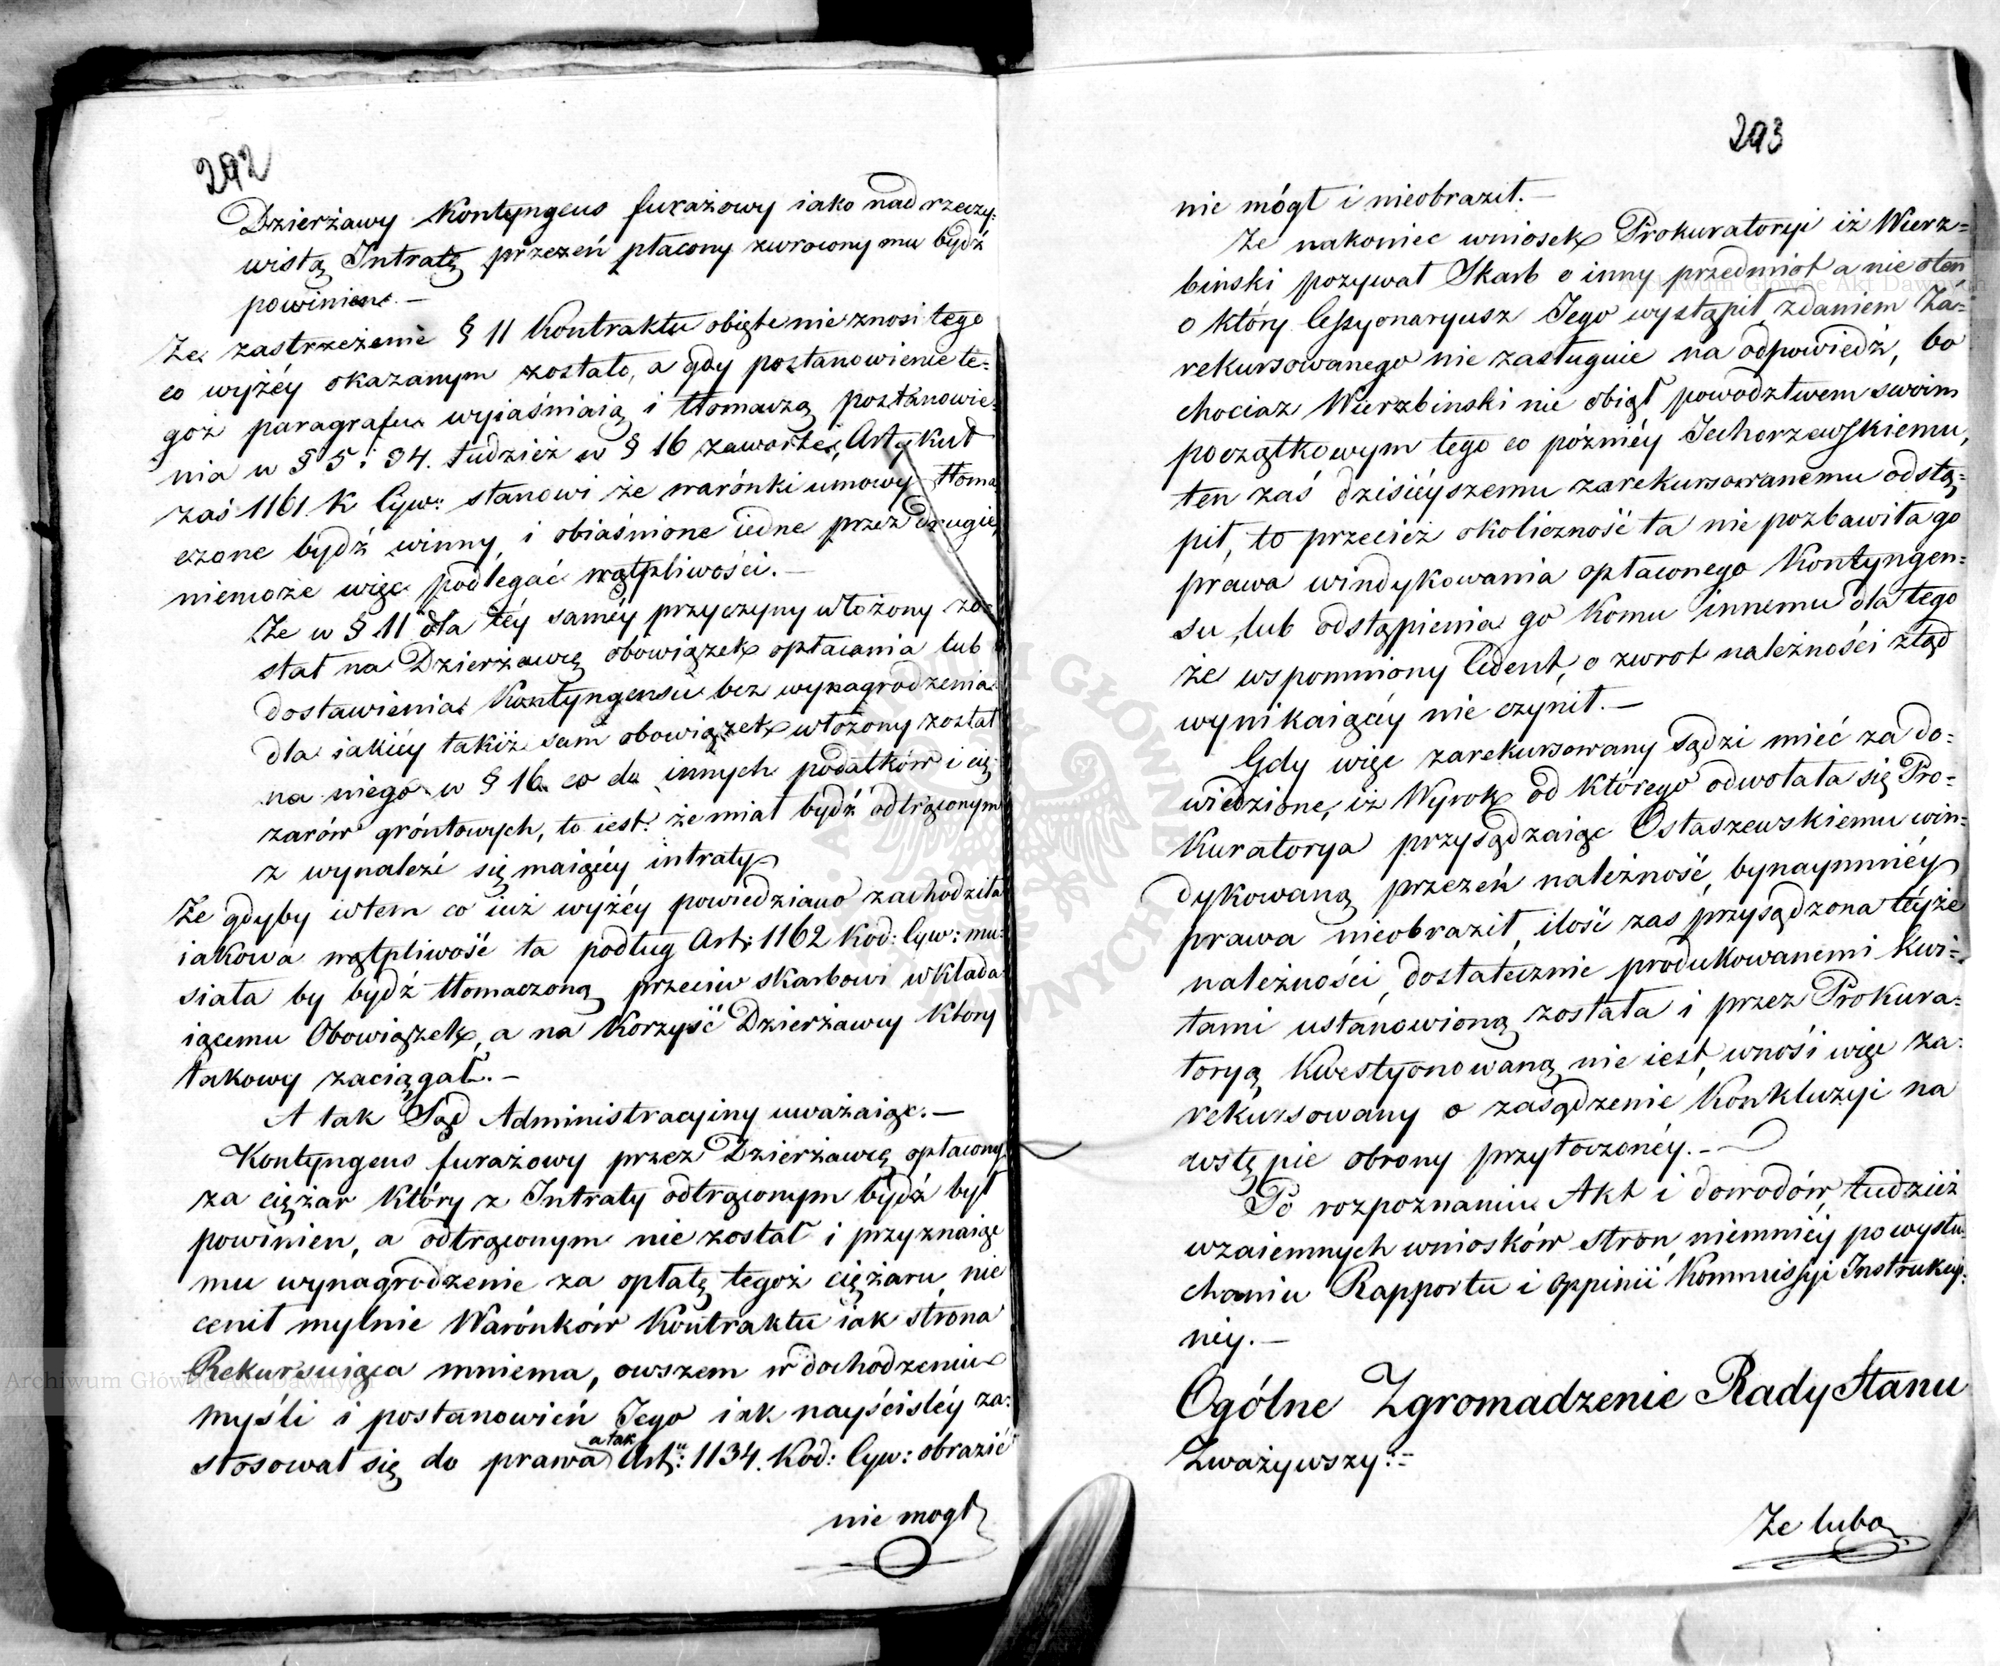 292
Dzierżawy Kontyngens furażowy iako nad rzeczy-
wistą Intratę przezeń płacony zwrocony mu bydź
powinien. —
Że zastrzeżenie § 11 Kontraktu obięte nie znosi tego
co wyżéy okazanym zostało, a gdy postanowienie te-
goż paragrafu wyiaśniaią i tłomaczą postanowie-
nia w § 5 i 34. tudzież w § 16 zawarte, Artykuł
zaś 1161 K Cyw: stanowi że warónki umowy tłoma-
czone bydź winny, i obiaśnione iedne przez drugie,
niemoże więc podlegać wątpliwości. —
Że w § 11 dla téy saméy przyczyny włożony zo-
stał na Dzierżawcę obowiązek opłacania lub
dostawienia Kontyngensu bez wynagrodzenia
dla iakiéy takiż sam obowiązek włożony został
na niego w § 16 co do innych podatków i cię-
zarów gróntowych, to iest: że miał bydź odtrąconym
z wynaleźć się maiącéy intraty
Że gdyby wtem co iuż wyżéy powiedziano zachodziła
iakowa wątpliwość ta podług Art: 1162 Kod: Cyw: mu-
siała by bydź tłomaczoną przeciw skarbowi wkłada-
iącemu Obowiązek, a na Korzyść Dzierżawcy Ktory
takowy zaciągał. —
A tak Sąd Administracyiny uważaiąc. —
Kontyngens furażowy przez Dzierżawcę opłacony
za ciężar Który z Intraty odtrąconym bydź był
powinien, a odtrąconym nie został i przyznaiąc
mu wynagrodzenie za opłatę tegoż ciężaru, nie
cenił mylnie Warónków Kontraktu iak strona
Rekursuiąca mniema, owszem w dochodzeniu
myśli i postanowień Jego iak nayściśléy za-
stosował się do prawa a tak Art: 1134. Kod: Cyw: obrazić
nie mogł
293
nie mógł i nieobraził. —
Że nakoniec wniosek Prokuratoryi iż Wierz-
binski pozywał Skarb o inny przedmiot a nie oten
o który Cessyonaryusz Jego wystąpił, zdaniem Za-
rekursowanego nie zasługuie na odpowiedź, bo
chociaz Wierzbinski nie obiął powodztwem swoim
początkowym tego co późniéy Jechorzewskiemu,
ten zaś dzisiéyszemu zarekursowanemu odstą-
pił, to przecież okoliczność ta nie pozbawiła go
prawa windykowania opłaconego Kontyngen-
su, lub odstąpienia go Komu innemu dla tego
że wspomniony Cedent, o zwrot należności ztąd
wynikaiącéy nie czynił. —
Gdy więc zarekursowany sądzi mieć za do-
wiedzione, iż Wyrok od którego odwołała się Pro-
kuratorya przysądzaiąc Ostaszewskiemu win-
dykowaną przezeń należność, bynaymniéy
prawa nieobraził, ilość zaś przysądzona téyże
należności, dostatecznie produkowanemi Kwi-
tami ustanowioną została i przez Prokura-
toryą Kwestyonowaną nie iest, wnośi więc za-
rekursowany o zasądzenie Konkluzyi na
wstępie obrony przytoczonéy. —
Po rozpoznaniu Akt i dowodów, tudzież
wzaiemnych wniosków stron niemniéy po wysłu-
chaniu Rapportu i Oppinii Kommissyi Instrukcyi-
néy. —
Ogólne Zgromadzenie Rady Stanu
Zważywszy: —
Że lubo